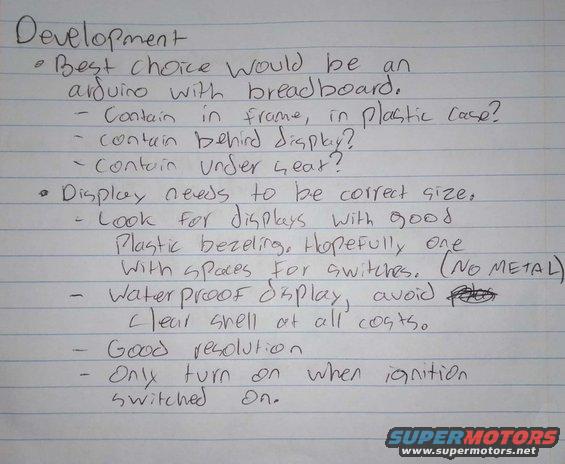 Development
• Best choice would be an
arduino with breadboard.
- Contain in frame, in plastic case?
- contain behind display?
- contain under seat?
• Display needs to be correct size.
- Look for displays with good
plastic bezeling. Hopefully one
with spaces for switches. (NO METAL)
- Waterproof display, avoid
clear shell at all costs.
- Good resolution
- Only turn on when ignition
switched on.
SUPERMOTORS
www.supermotors.net